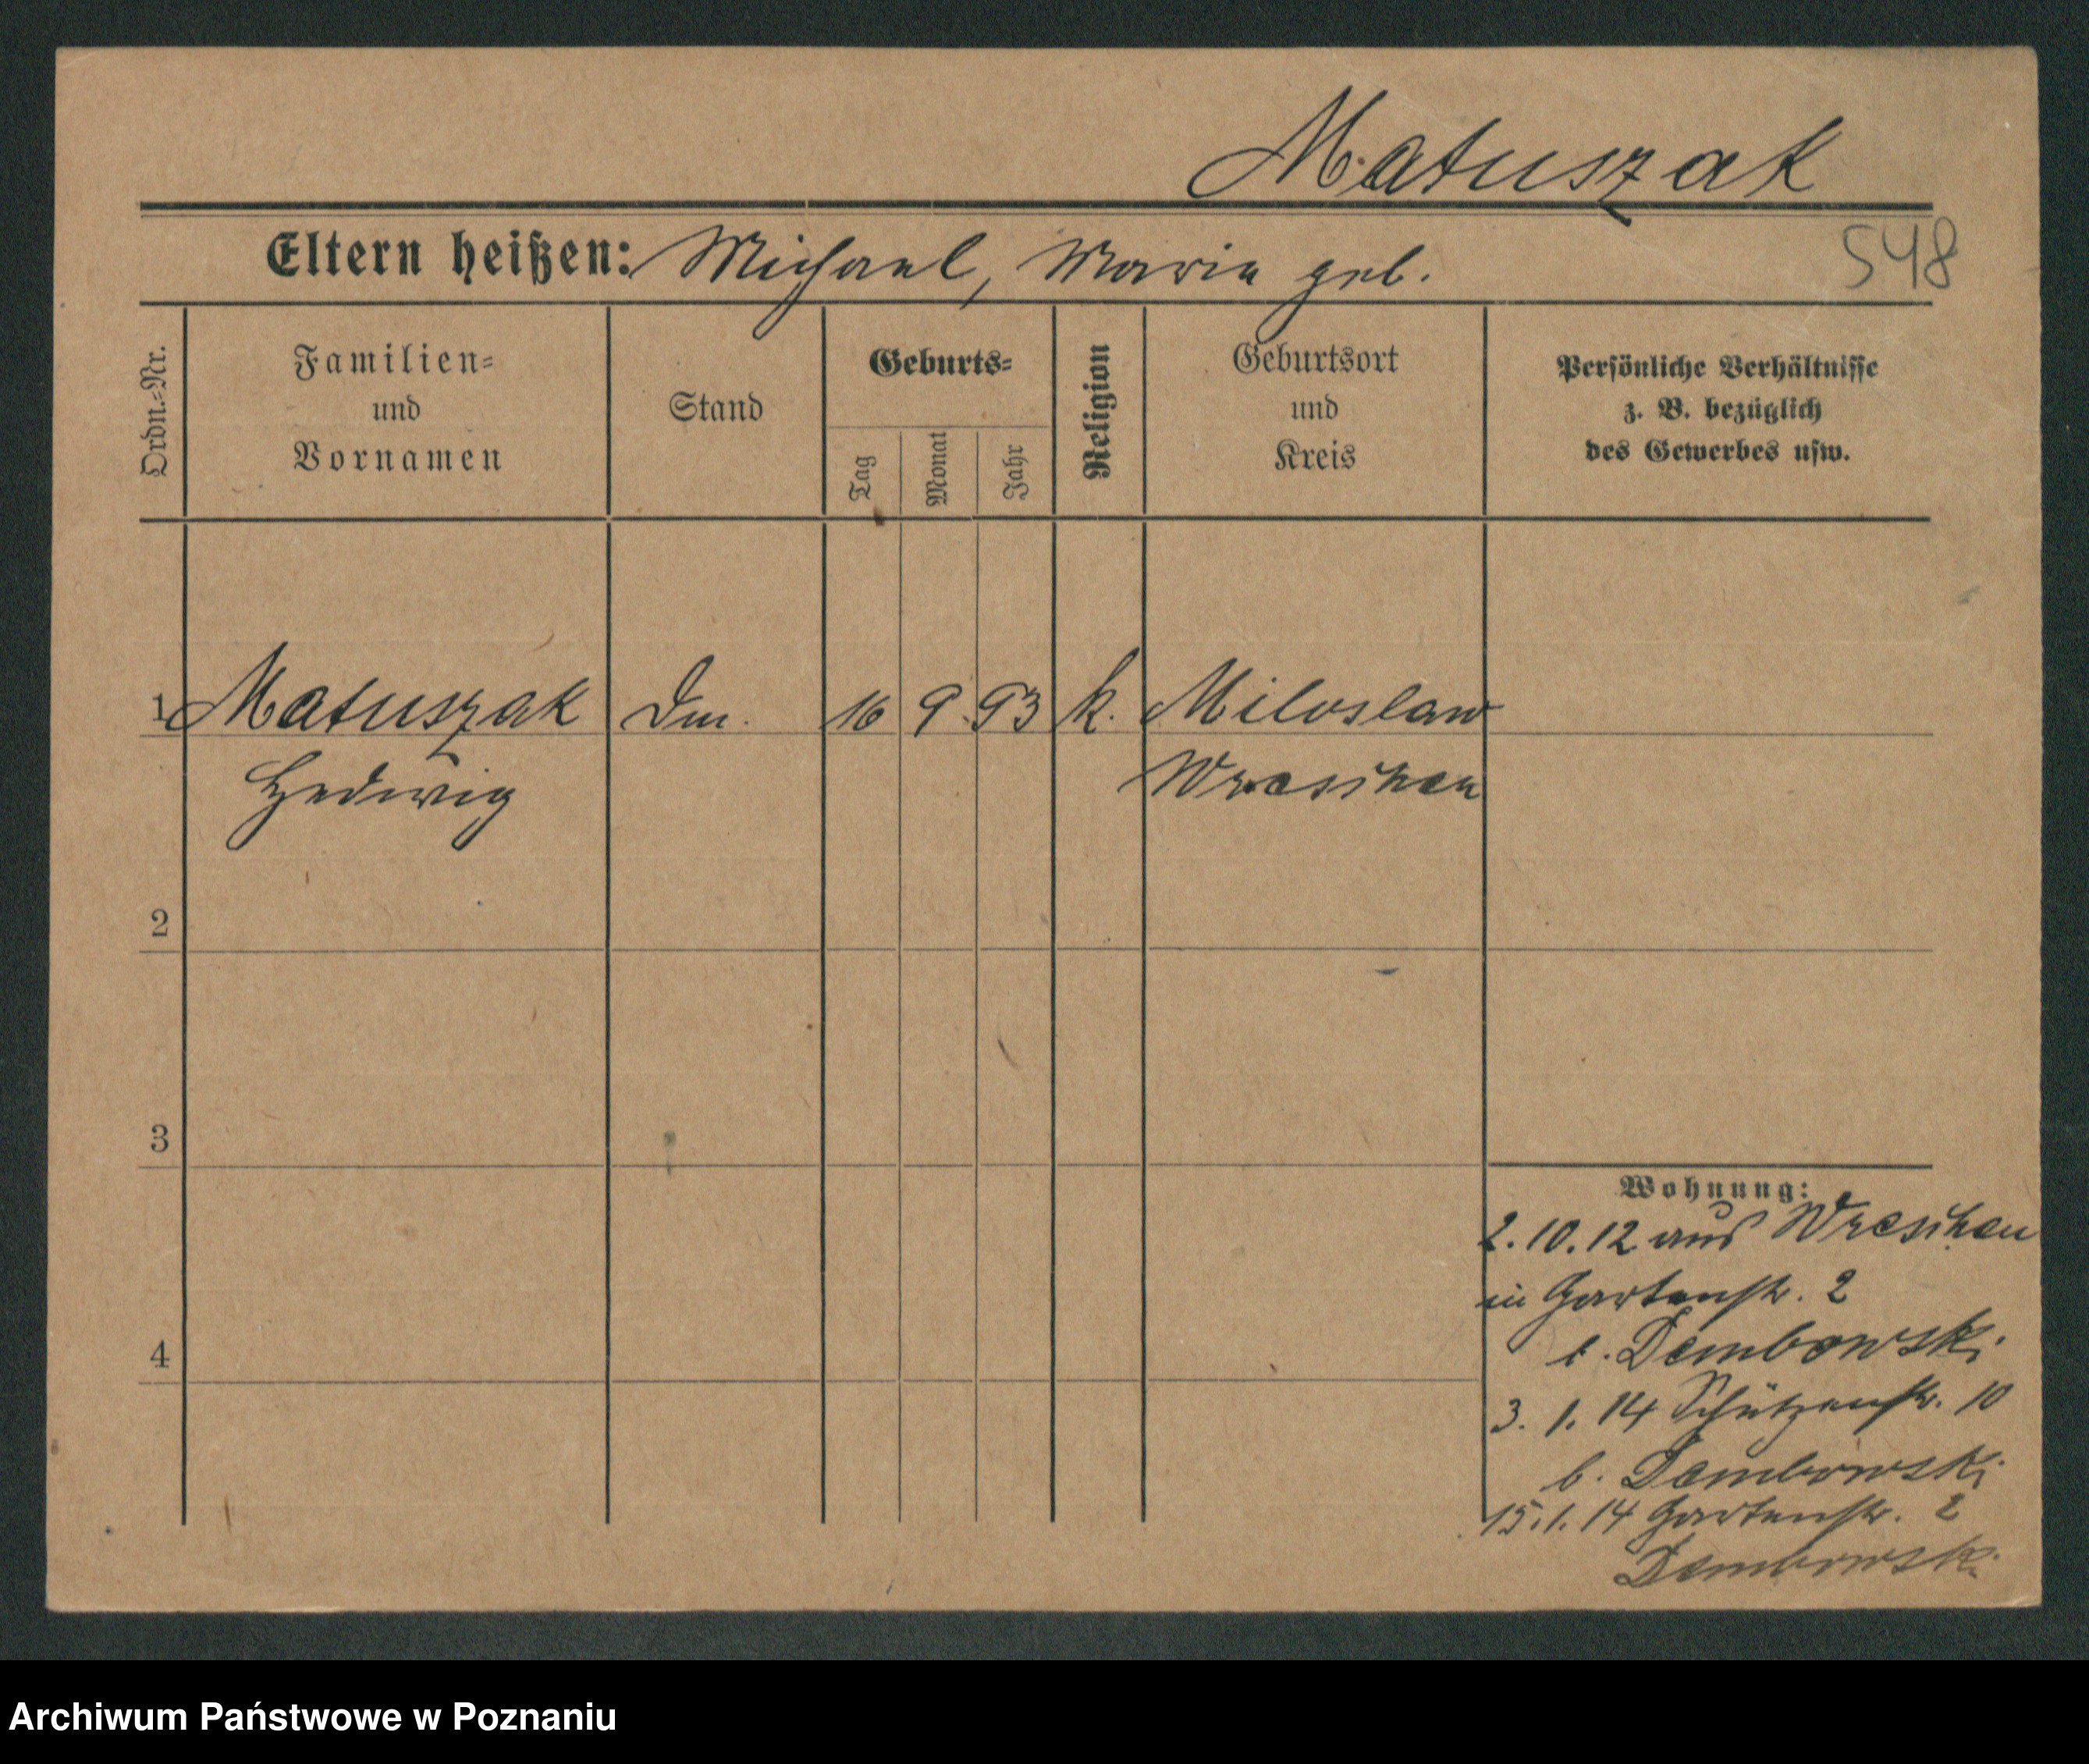 Matuszak
Eltern heißen: Michael, Maria geb.
548
Ordn.-Nr.
Familien-
und
Vornamen
Stand
Geburts-
Tag
Monat
Jahr
Religion
Geburtsort
und
Kreis
Persönliche Verhältnisse
z. B. bezüglich
des Gewerbes usw.
1 Matuszak Dm. 16 9. 93 k. Miloslaw
Hedwig Wreschen
2
3
4
Wohnung:
2.10.12 aus Wreschen
in Gartenstr. 2
b. Dembowski
3. 1. 14 Schützenstr. 10
b. Dembowski
15.1.14 Gartenstr. 2
Dembowski
Archiwum Państwowe w Poznaniu